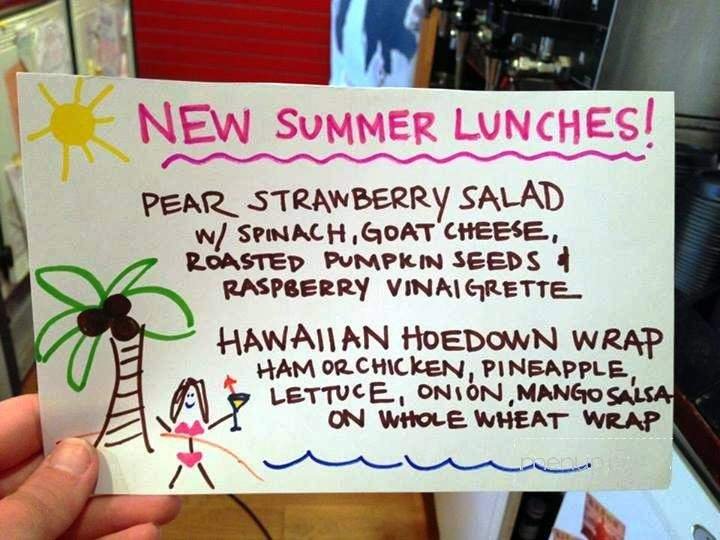 NEW SUMMER LUNCHES!
PEAR STRAWBERRY SALAD
W/ SPINACH, GOAT CHEESE,
ROASTED PUMPKIN SEEDS &
RASPBERRY VINAIGRETTE
HAWAIIAN HOEDOWN WRAP
HAM OR CHICKEN, PINEAPPLE,
LETTUCE, ONION, MANGO SALSA
ON WHOLE WHEAT WRAP